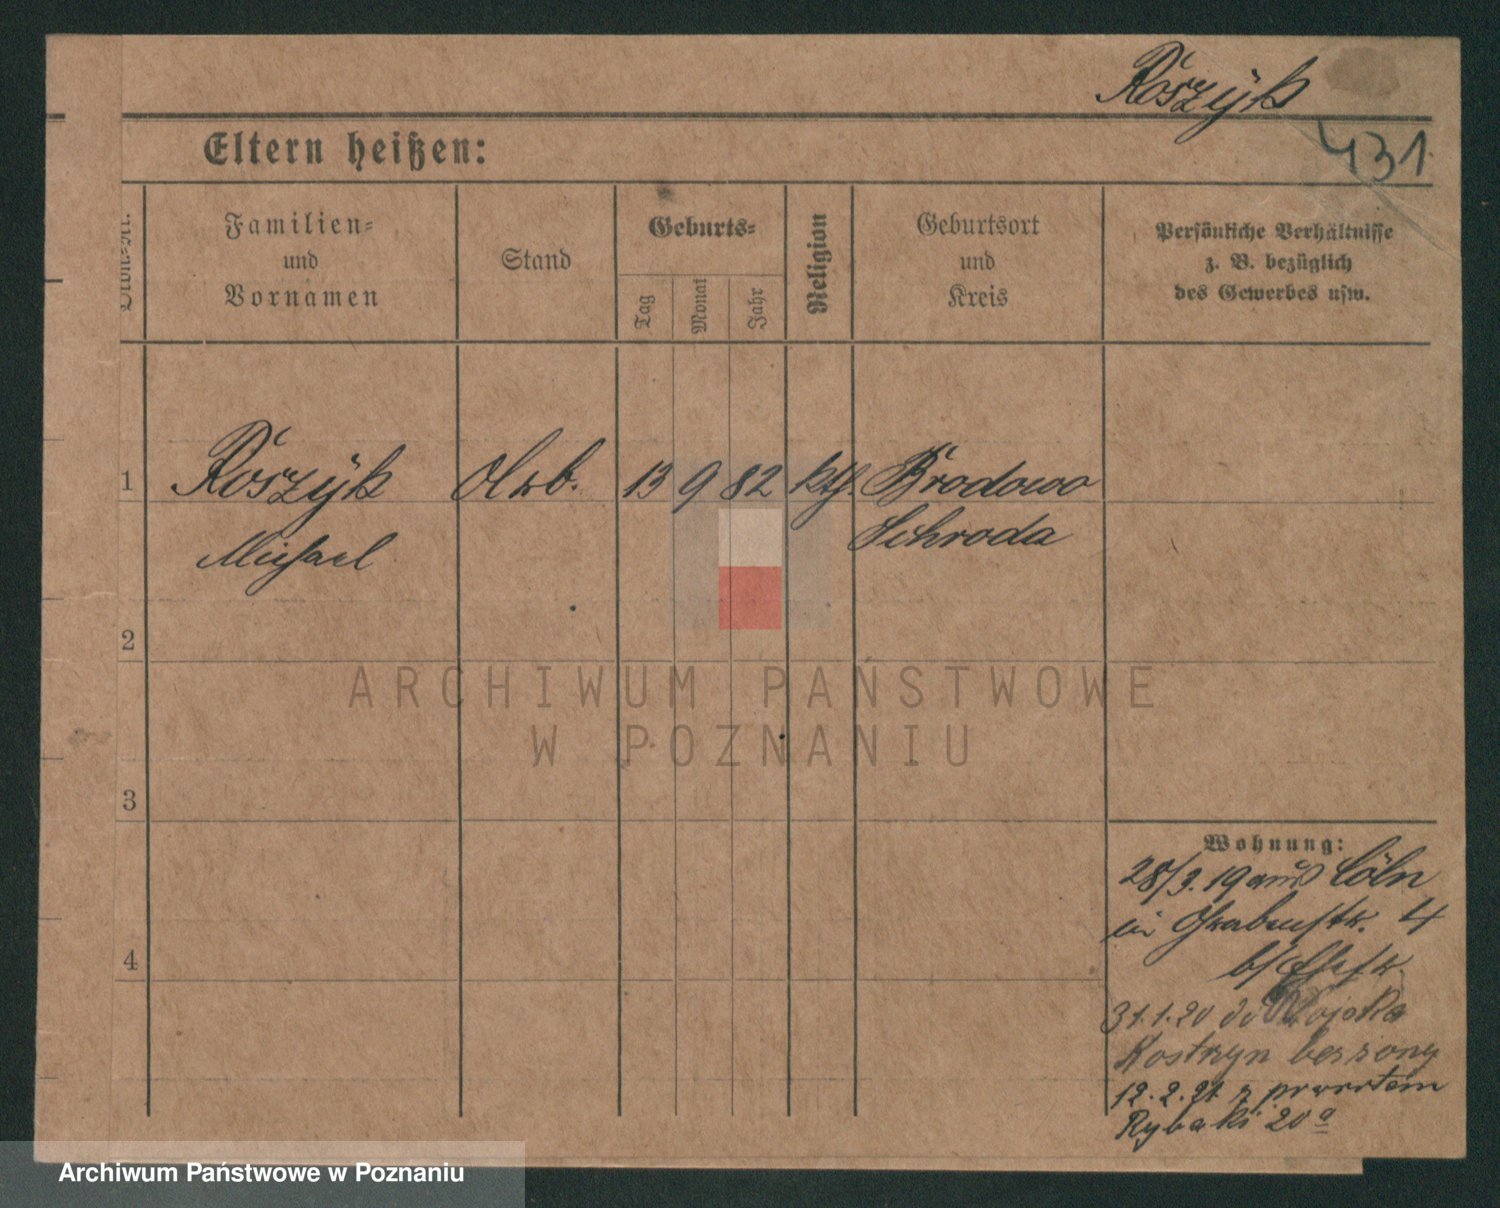 Koszyk
431
Eltern heißen:
Familien-
und
Vornamen
Stand
Geburts-
Tag
Monat
Jahr
Religion
Geburtsort
und
Kreis
Persönliche Verhältnisse
z. B. bezüglich
des Gewerbes usw.
1 Koszyk Arb. 13 9 82 kth. Brodowo
Michael Schroda
2
ARCHIWUM PAŃSTWOWE
W POZNANIU
3
Wohnung:
28/3. 19 aus Cöln
in Grabenstr. 4
b/ Ehefr.
31.1.20 do Wojska
4
Kostrzyn bez zony
12.2.21 z powrotem
Rybaki 20a
Archiwum Państwowe w Poznaniu